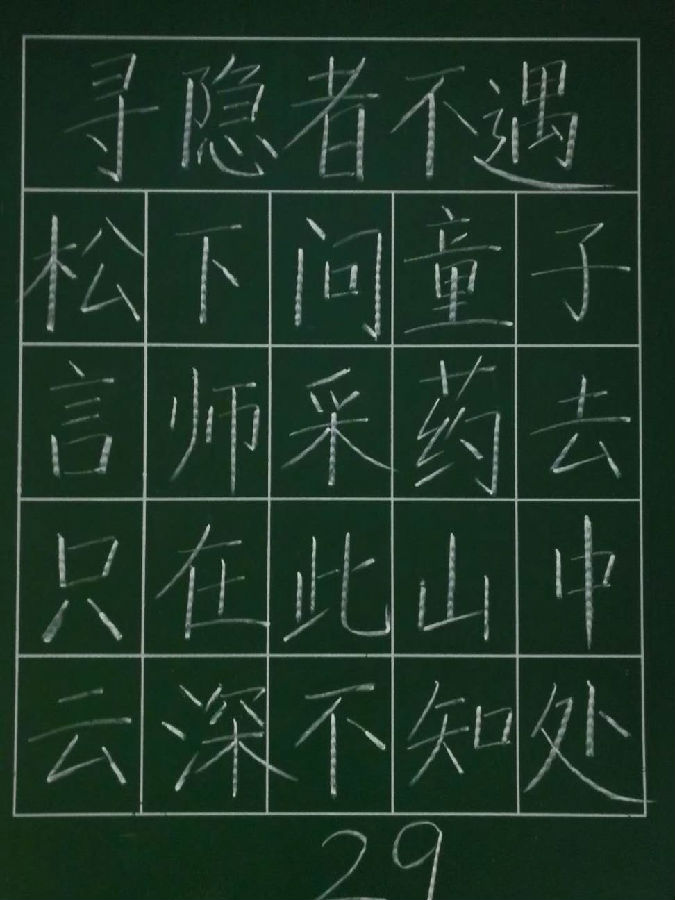 寻隐者不遇
松下问童子
言师采药去
只在此山中
云深不知处
29